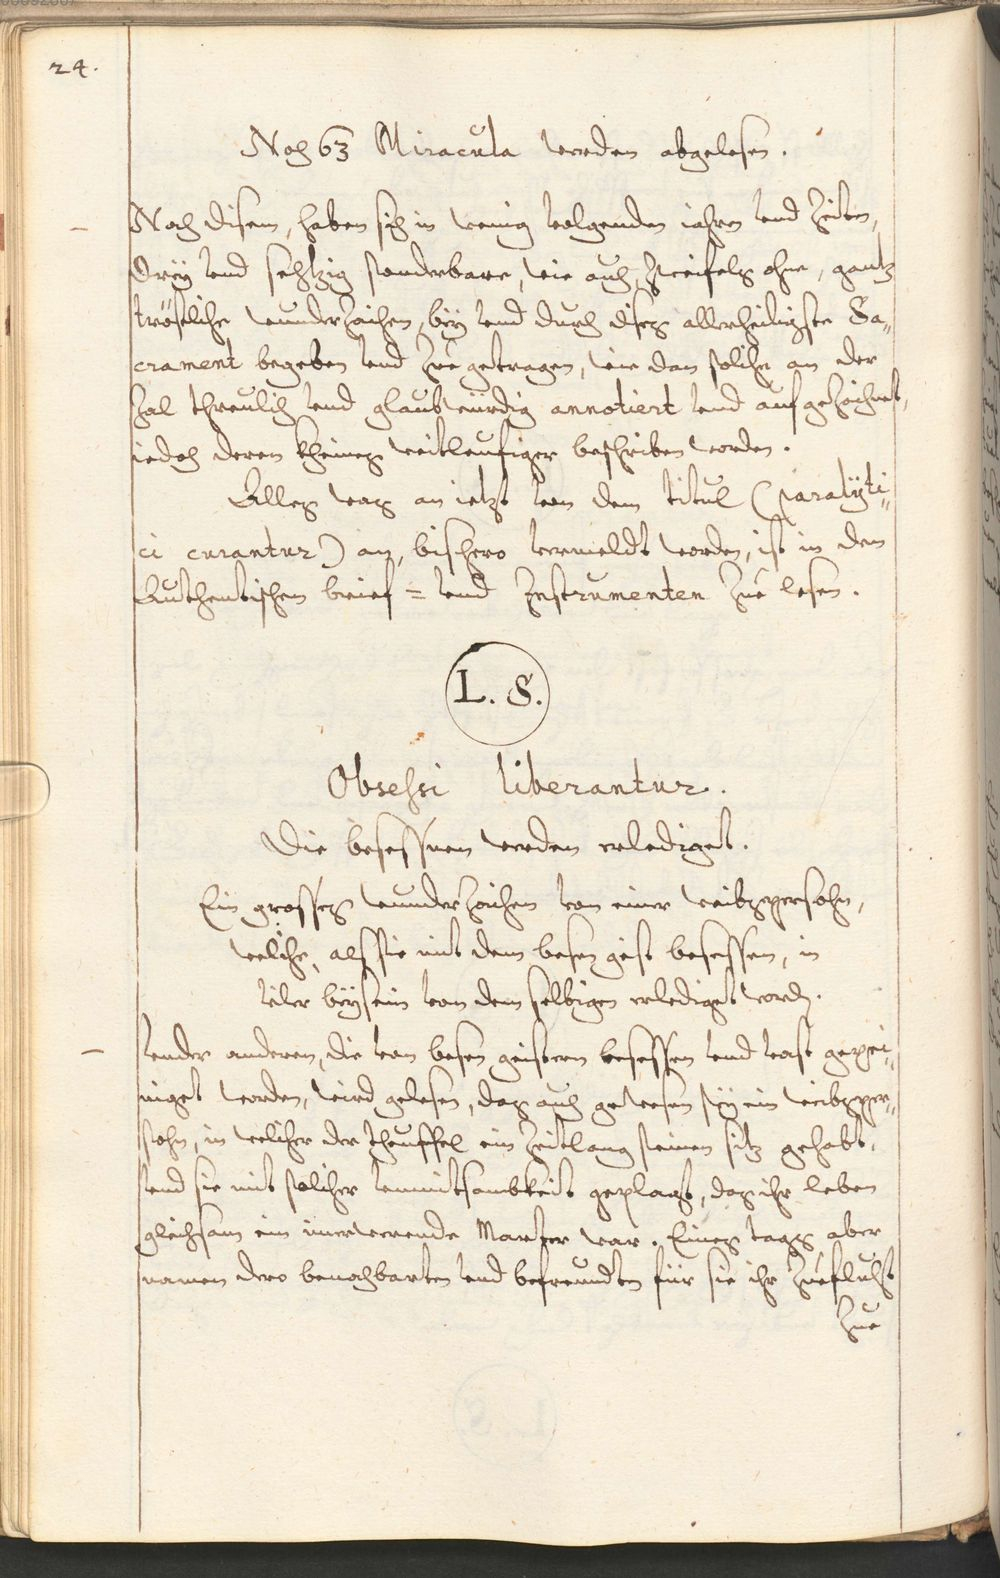 24.
Noch 63 Miracula werden abgelesen.
Noch disem, haben sich in wenig volgenden iahren vnd Zeiten,
dreÿ vnd sechtzig sonderbare, wie auch Zweifels ohne, gantz
tröstliche wunderzaichen, beÿ vnd durch dises allerheiligste Sa„
crament begeben vnd Zue getragen, wie dan solche an der
Zal threulich vnd glaubwürdig annotiert vnd aufgezaichnet,
iedoch deren kheines weitleufiger beschriben worden.
Alles was an ietzt von dem titul (Paralÿti„
ci curantur) an, bischero vermeldt worden, ist in den
Authentischen brief= vnd Instrumenten Zue lesen.
L. S.
Obsessi liberantur.
Die besessnen werden erlediget.
Ein grosses wunderzaichen von einer weibspersohn,
weliche, als sie mit dem bösen geist besessen, in
viler beÿsein von dem selbigen erlediget word.
vnder anderen, die von bösen geisteren besessen vnd vast gepei„
niget worden, wird gelesen, das auch gewesen seÿ ein weibsper„
sohn, in welicher der theuffel ein Zeitlang seinen sitz gehabt,
vnd sie mit solicher vnmiltsambkeit geplagt, das ihr leben
gleichsam ein immerwerende Marter war. Eines tags aber
namen dero benachbarten vnd befreundten für sie ihr Zueflucht
Zue